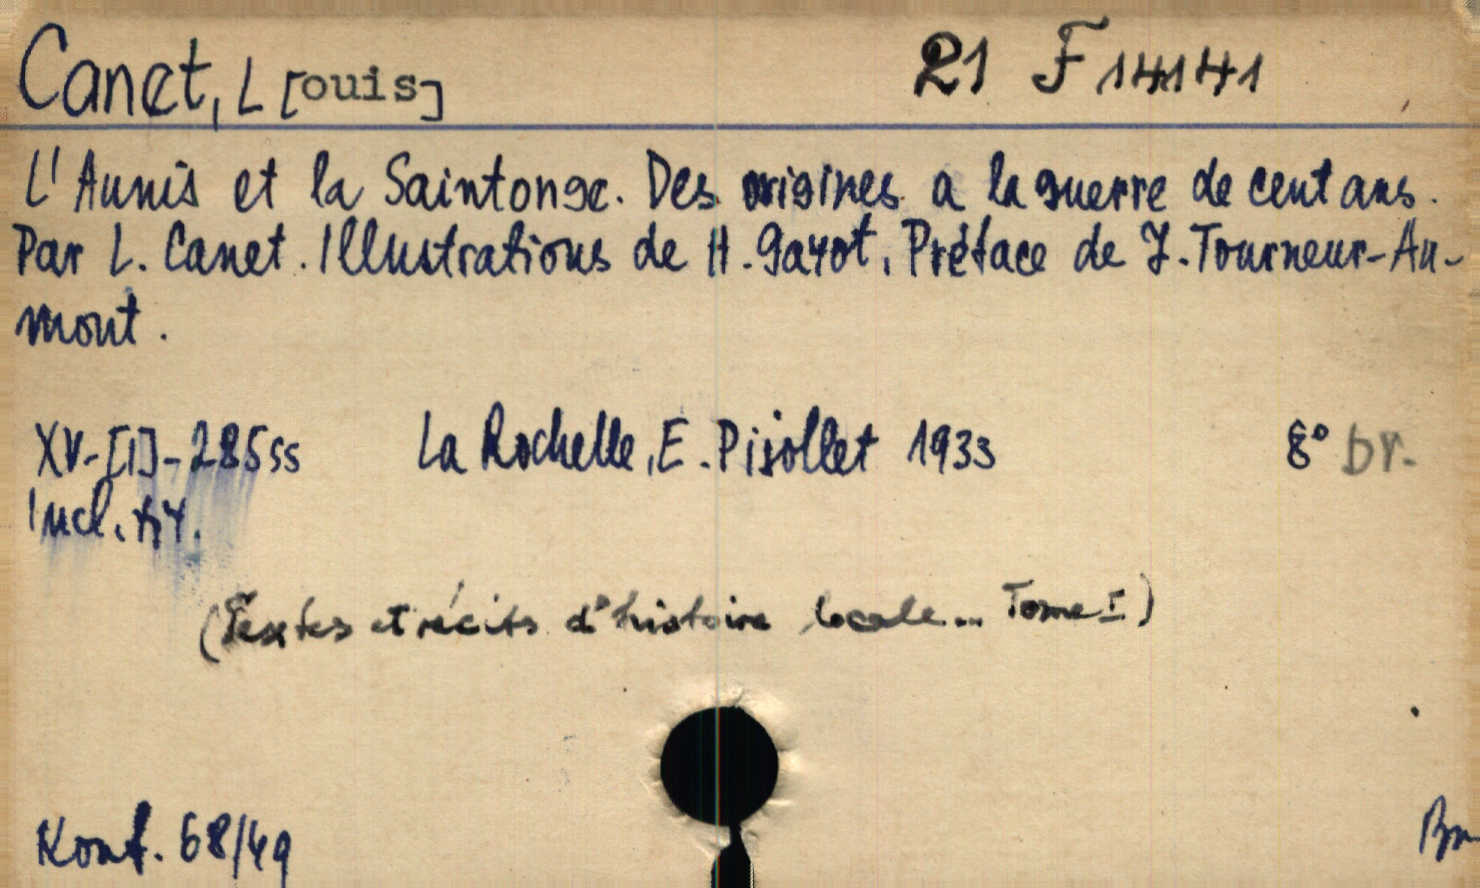 Canet, L[ouis] 21 F 14141
L'Aunis et la Saintonge. Des origines a la guerre de cent ans.
Par L. Canet. Illustrations de H. Gayot. Préface de J. Tourneur-Au-
mont.
XV-[1]-285 ss La Rochelle, E. Pijollet 1933 8° br.
Incl.
(Textes et récits d'histoire locale... Tome I)
Konf. 68/49